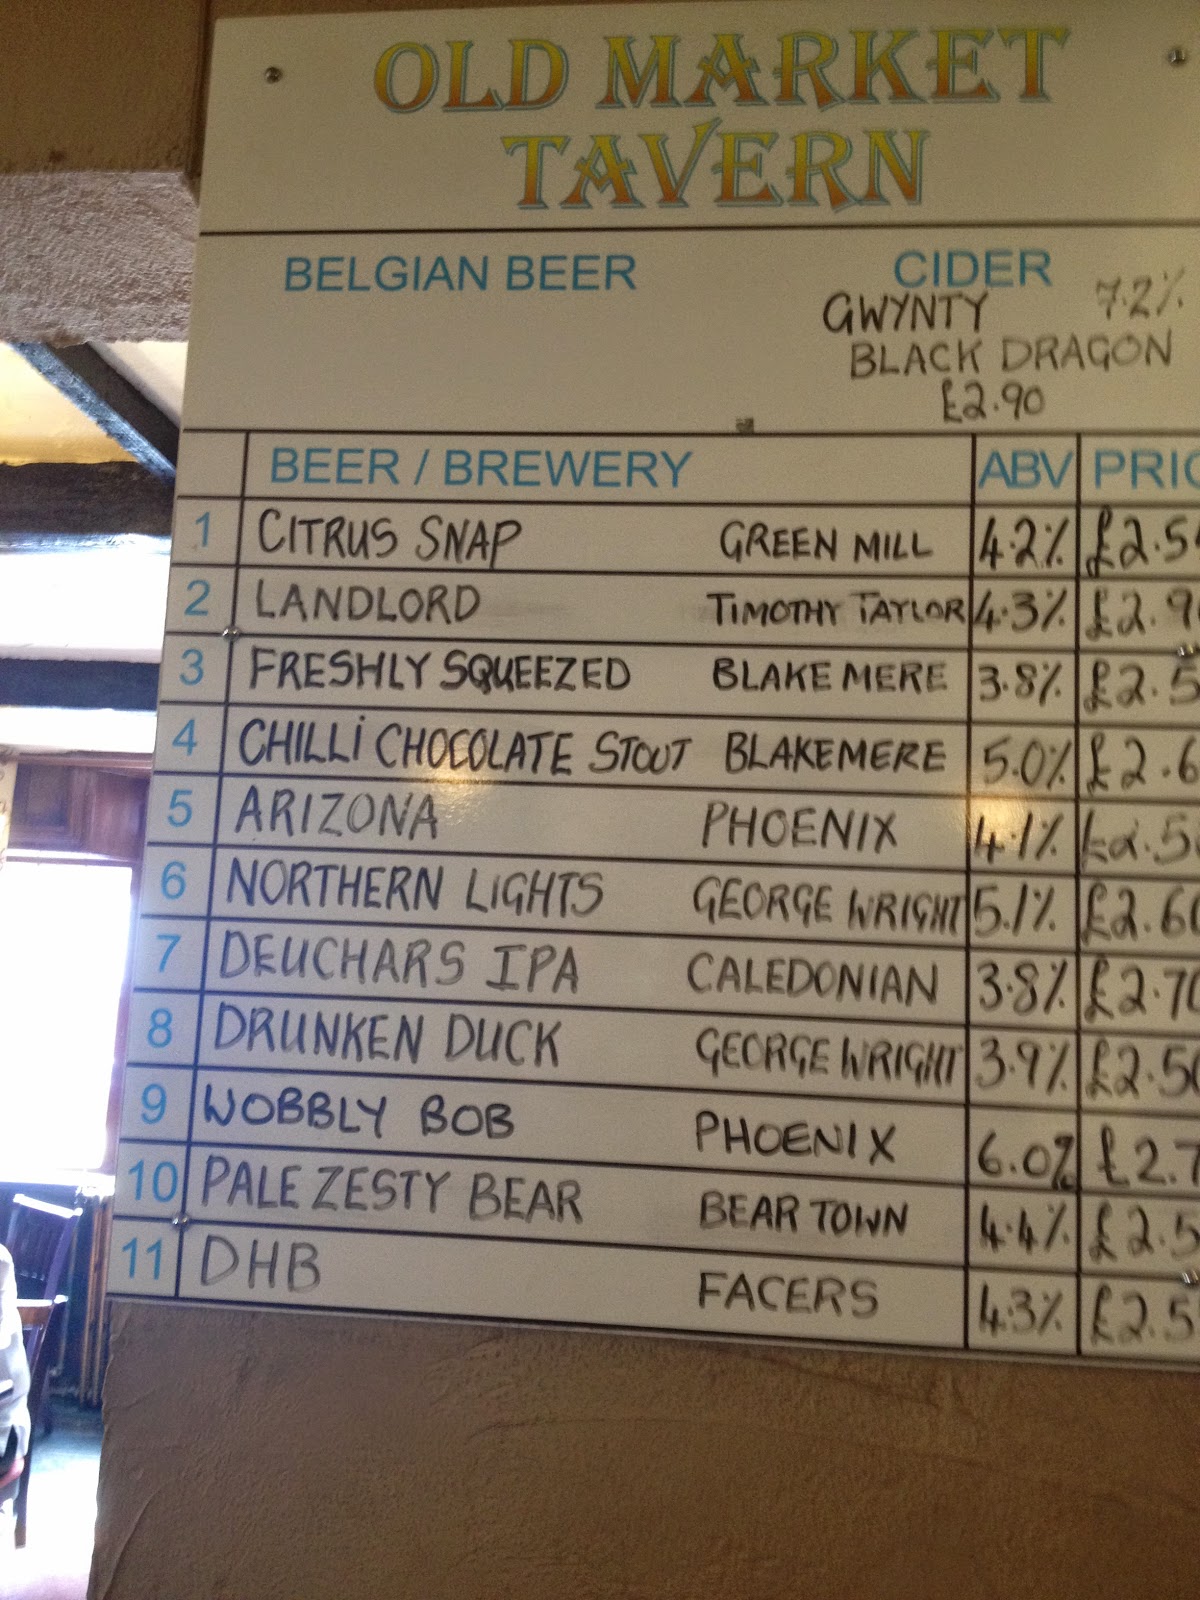 OLD MARKET
TAVERN
BELGIAN BEER CIDER
GWYNTY 7.2%
BLACK DRAGON
£2.90
BEER / BREWERY ABV PRIC
1 CITRUS SNAP GREEN MILL 4.2% £2.5
2 LANDLORD TIMOTHY TAYLOR 4.3% £2.9
3 FRESHLY SQUEEZED BLAKEMERE 3.8% £2.5
4 CHILLI CHOCOLATE STOUT BLAKEMERE 5.0% £2.6
5 ARIZONA PHOENIX 4.1% £2.5
6 NORTHERN LIGHTS GEORGE WRIGHT 5.1% £2.60
7 DEUCHARS IPA CALEDONIAN 3.8% £2.70
8 DRUNKEN DUCK GEORGE WRIGHT 3.9% £2.50
9 WOBBLY BOB PHOENIX 6.0% £2.7
10 PALE ZESTY BEAR BEAR TOWN 4.4% £2.5
11 DHB FACERS 4.3% £2.5